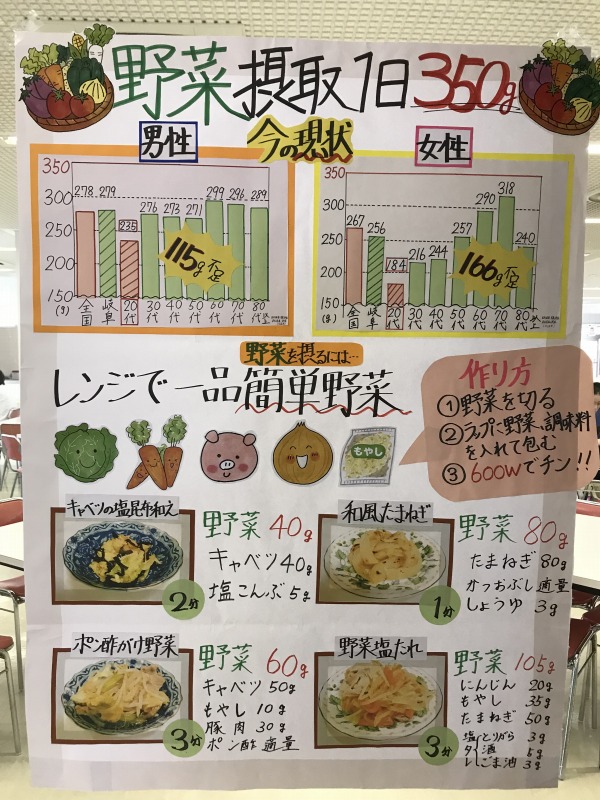 野菜摂取1日350g
今の現状
男性
350
300
250
200
150
(g)
278 279 235 276 273 271 299 296 289
115g不足
全国 岐阜 20代 30代 40代 50代 60代 70代 80代以上
女性
350
300
250
200
150
(g)
267 256 184 216 244 257 290 318 240
166g不足
全国 岐阜 20代 30代 40代 50代 60代 70代 80代以上
野菜を摂るには…
レンジで一品簡単野菜
もやし
作り方
①野菜を切る
②ラップに野菜、調味料
を入れて包む
③600Wでチン!!
キャベツの塩昆布和え
2分
野菜40g
キャベツ40g
塩こんぶ5g
和風たまねぎ
1分
野菜80g
たまねぎ80g
かつおぶし適量
しょうゆ3g
ポン酢がけ野菜
3分
野菜60g
キャベツ50g
もやし10g
豚肉30g
ポン酢適量
野菜塩たれ
3分
野菜105g
にんじん20g
もやし35g
たまねぎ50g
塩タレ
とりがら3g
酒5g
ごま油3g